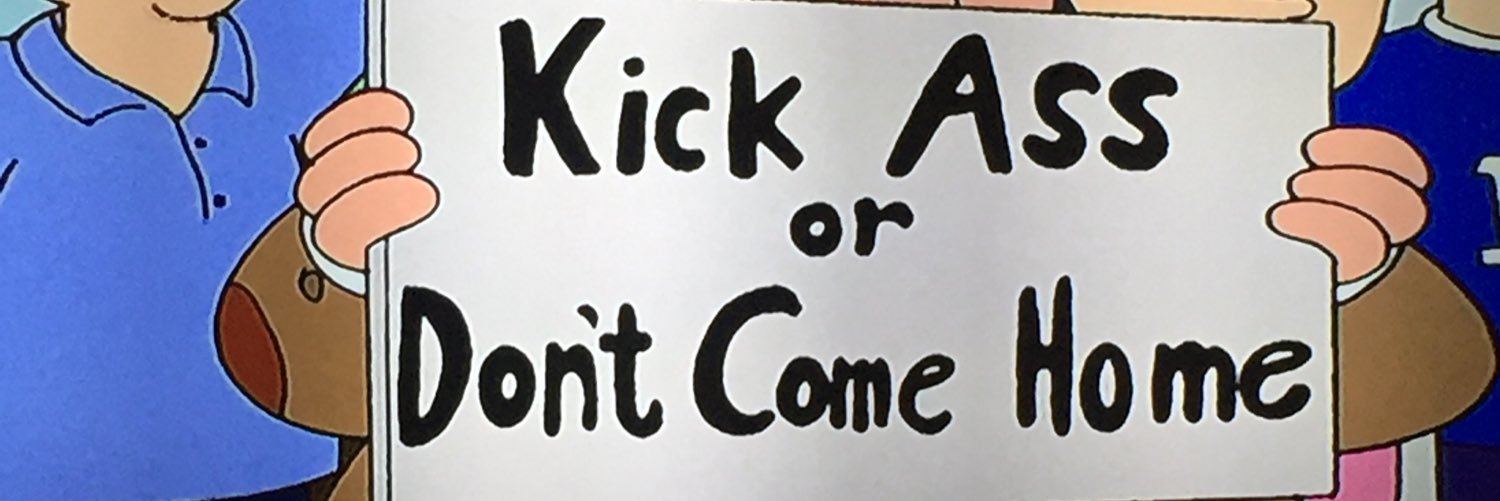 Kick Ass
or
Don't Come Home